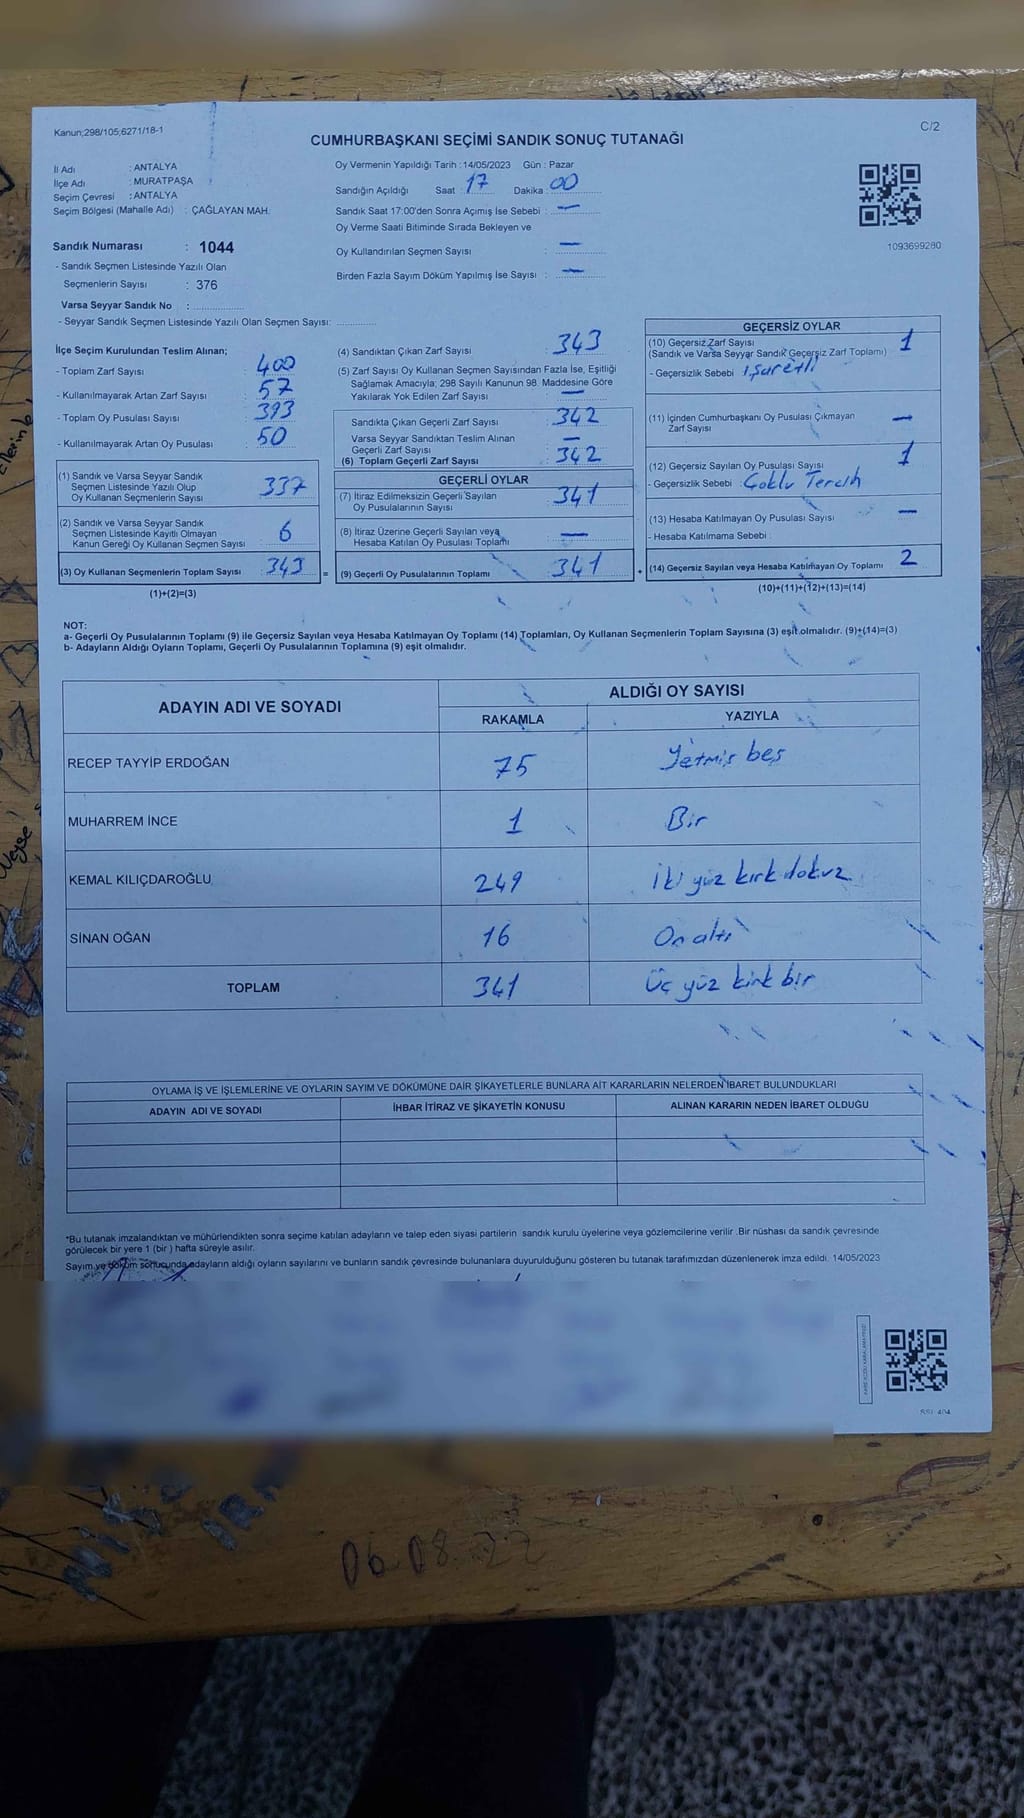 Kanun;298/105;6271/18-1
C/2
CUMHURBAŞKANI SEÇİMİ SANDIK SONUÇ TUTANAĞI
İl Adı : ANTALYA
İlçe Adı : MURATPAŞA
Seçim Çevresi : ANTALYA
Seçim Bölgesi (Mahalle Adı) : ÇAĞLAYAN MAH.
Oy Vermenin Yapıldığı Tarih : 14/05/2023 Gün : Pazar
Sandığın Açıldığı Saat : 17 Dakika : 00
Sandık Saat 17:00'den Sonra Açımış İse Sebebi : —
Oy Verme Saati Bitiminde Sırada Bekleyen ve
Oy Kullandırılan Seçmen Sayısı : —
Birden Fazla Sayım Döküm Yapılmış İse Sayısı : —
1093699280
Sandık Numarası : 1044
- Sandık Seçmen Listesinde Yazılı Olan
Seçmenlerin Sayısı : 376
Varsa Seyyar Sandık No :
- Seyyar Sandık Seçmen Listesinde Yazılı Olan Seçmen Sayısı:
İlçe Seçim Kurulundan Teslim Alınan;
- Toplam Zarf Sayısı : 400
- Kullanılmayarak Artan Zarf Sayısı : 57
- Toplam Oy Pusulası Sayısı : 393
- Kullanılmayarak Artan Oy Pusulası : 50
(1) Sandık ve Varsa Seyyar Sandık
Seçmen Listesinde Yazılı Olup
Oy Kullanan Seçmenlerin Sayısı 337
(2) Sandık ve Varsa Seyyar Sandık
Seçmen Listesinde Kayıtlı Olmayan
Kanun Gereği Oy Kullanan Seçmen Sayısı 6
(3) Oy Kullanan Seçmenlerin Toplam Sayısı 343 =
(1)+(2)=(3)
(4) Sandıktan Çıkan Zarf Sayısı : 343
(5) Zarf Sayısı Oy Kullanan Seçmen Sayısından Fazla İse, Eşitliği
Sağlamak Amacıyla; 298 Sayılı Kanunun 98. Maddesine Göre
Yakılarak Yok Edilen Zarf Sayısı : —
Sandıkta Çıkan Geçerli Zarf Sayısı : 342
Varsa Seyyar Sandıktan Teslim Alınan
Geçerli Zarf Sayısı : —
(6) Toplam Geçerli Zarf Sayısı : 342
GEÇERLİ OYLAR
(7) İtiraz Edilmeksizin Geçerli Sayılan
Oy Pusulalarının Sayısı : 341
(8) İtiraz Üzerine Geçerli Sayılan veya
Hesaba Katılan Oy Pusulası Toplamı : —
(9) Geçerli Oy Pusulalarının Toplamı : 341 +
GEÇERSİZ OYLAR
(10) Geçersiz Zarf Sayısı 1
(Sandık ve Varsa Seyyar Sandık Geçersiz Zarf Toplamı)
- Geçersizlik Sebebi : İşaretli
(11) İçinden Cumhurbaşkanı Oy Pusulası Çıkmayan
Zarf Sayısı —
(12) Geçersiz Sayılan Oy Pusulası Sayısı 1
- Geçersizlik Sebebi : Çoklu Tercih
(13) Hesaba Katılmayan Oy Pusulası Sayısı —
- Hesaba Katılmama Sebebi :
(14) Geçersiz Sayılan veya Hesaba Katılmayan Oy Toplamı 2
(10)+(11)+(12)+(13)=(14)
NOT:
a- Geçerli Oy Pusulalarının Toplamı (9) ile Geçersiz Sayılan veya Hesaba Katılmayan Oy Toplamı (14) Toplamları, Oy Kullanan Seçmenlerin Toplam Sayısına (3) eşit olmalıdır. (9)+(14)=(3)
b- Adayların Aldığı Oyların Toplamı, Geçerli Oy Pusulalarının Toplamına (9) eşit olmalıdır.
ADAYIN ADI VE SOYADI ALDIĞI OY SAYISI
RAKAMLA YAZIYLA
RECEP TAYYİP ERDOĞAN 75 Yetmiş beş
MUHARREM İNCE 1 Bir
KEMAL KILIÇDAROĞLU 249 İki yüz kırk dokuz
SİNAN OĞAN 16 On altı
TOPLAM 341 Üç yüz kırk bir
OYLAMA İŞ VE İŞLEMLERİNE VE OYLARIN SAYIM VE DÖKÜMÜNE DAİR ŞİKAYETLERLE BUNLARA AİT KARARLARIN NELERDEN İBARET BULUNDUKLARI
ADAYIN ADI VE SOYADI İHBAR İTİRAZ VE ŞİKAYETİN KONUSU ALINAN KARARIN NEDEN İBARET OLDUĞU
*Bu tutanak imzalandıktan ve mühürlendikten sonra seçime katılan adayların ve talep eden siyasi partilerin sandık kurulu üyelerine veya gözlemcilerine verilir .Bir nüshası da sandık çevresinde
görülecek bir yere 1 (bir ) hafta süreyle asılır.
Sayım ve döküm sonucunda adayların aldığı oyların sayılarını ve bunların sandık çevresinde bulunanlara duyurulduğunu gösteren bu tutanak tarafımızdan düzenlenerek imza edildi. 14/05/2023
06.08.22